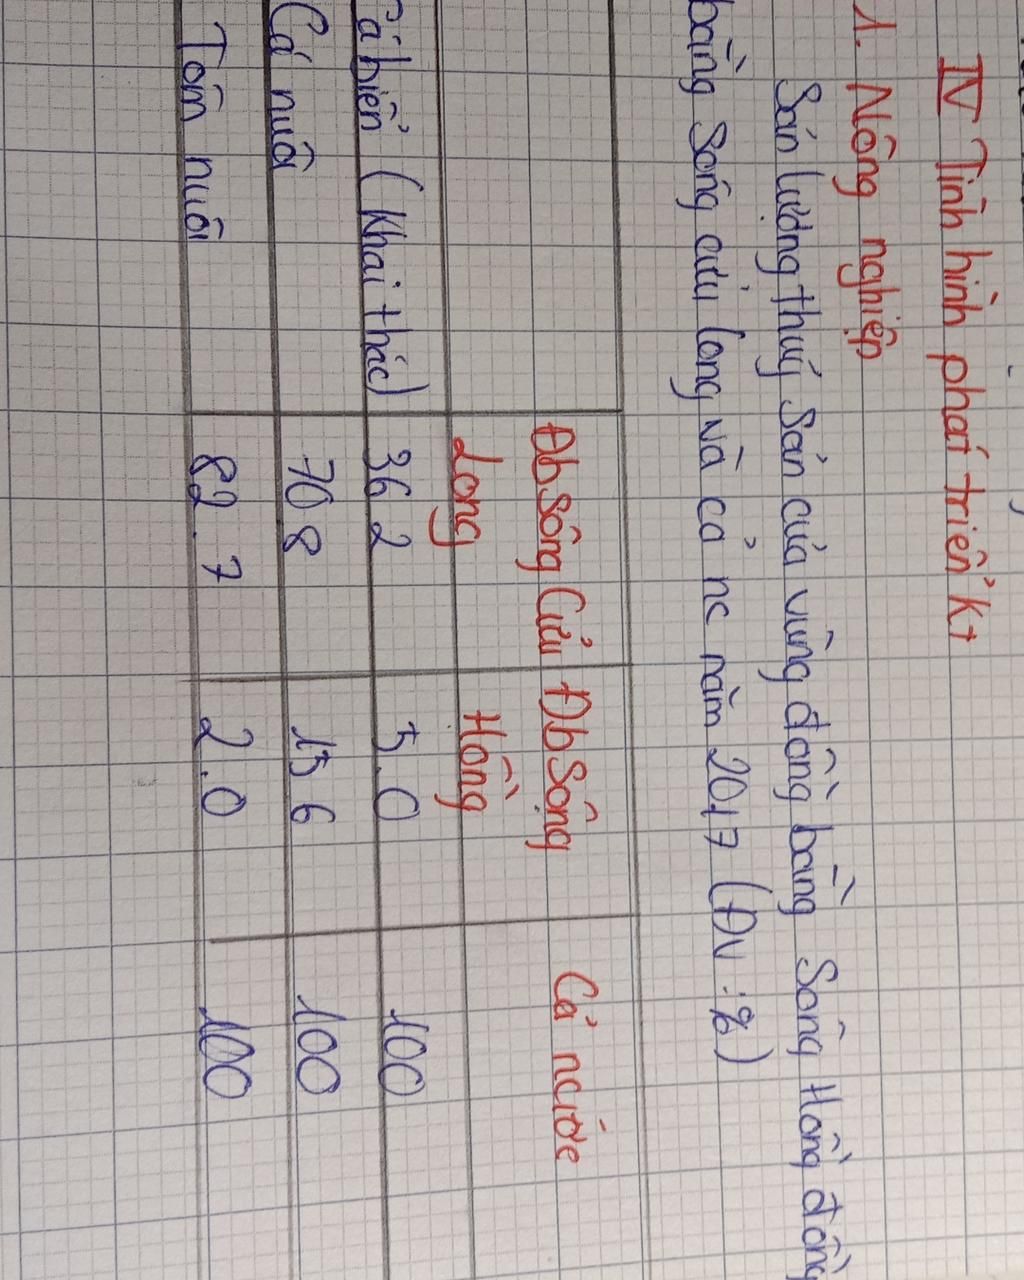 IV Tình hình phát triển kt
1. Nông nghiệp
Sản lượng thuỷ sản của vùng đồng bằng Sông Hồng đồng
bằng Sông cửu long và cả nc năm 2017 (ĐV:%)
Đb sông Cửu Long Đb Sông Hồng Cả nước
Cá biển (Khai thác) 36 2 5.0 100
Cá nuôi 70 8 15 6 100
Tôm nuôi 82.7 2.0 100